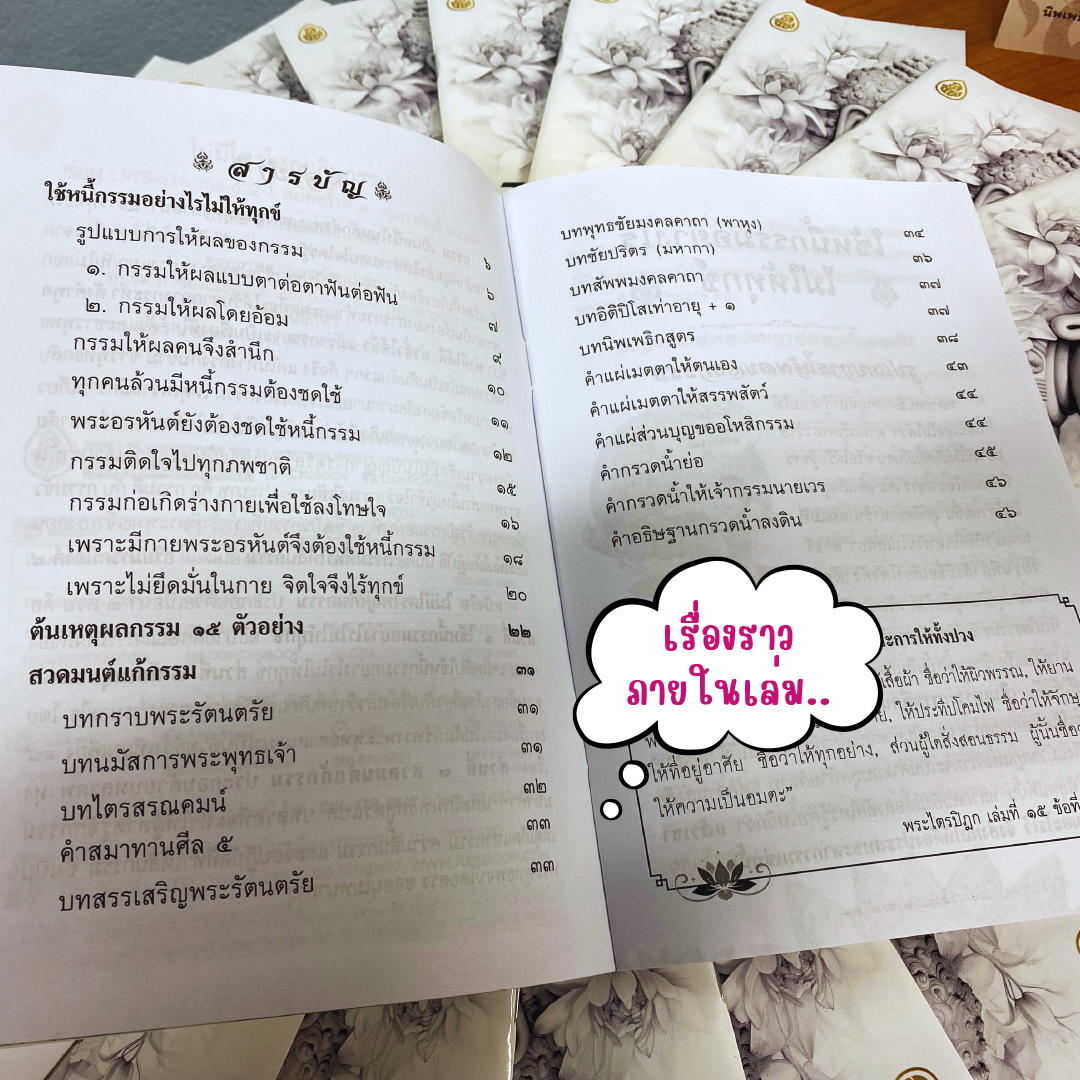 สารบัญ
ใช้หนี้กรรมอย่างไรไม่ให้ทุกข์
รูปแบบการให้ผลของกรรม ๖
๑. กรรมให้ผลแบบตาต่อตาฟันต่อฟัน ๖
๒. กรรมให้ผลโดยอ้อม ๗
กรรมให้ผลคนจึงสำนึก ๙
ทุกคนล้วนมีหนี้กรรมต้องชดใช้ ๑๐
พระอรหันต์ยังต้องชดใช้หนี้กรรม ๑๑
กรรมติดใจไปทุกภพชาติ ๑๒
กรรมก่อเกิดร่างกายเพื่อใช้ลงโทษใจ ๑๕
เพราะมีกายพระอรหันต์จึงต้องใช้หนี้กรรม ๑๖
เพราะไม่ยึดมั่นในกาย จิตใจจึงไร้ทุกข์ ๑๘
๒๐
ต้นเหตุผลกรรม ๑๕ ตัวอย่าง ๒๒
สวดมนต์แก้กรรม ๓๑
บทกราบพระรัตนตรัย ๓๑
บทนมัสการพระพุทธเจ้า ๓๑
บทไตรสรณคมน์ ๓๒
คำสมาทานศีล ๕ ๓๓
บทสรรเสริญพระรัตนตรัย ๓๓
บทพุทธชัยมงคลคาถา (พาหุง) ๓๔
บทชัยปริตร (มหากา) ๓๖
บทสัพพมงคลคาถา ๓๗
บทอิติปิโสเท่าอายุ + ๑ ๓๗
บทนิพเพธิกสูตร ๓๘
คำแผ่เมตตาให้ตนเอง ๔๓
คำแผ่เมตตาให้สรรพสัตว์ ๔๔
คำแผ่ส่วนบุญขออโหสิกรรม ๔๔
คำกรวดน้ำย่อ ๔๕
คำกรวดน้ำให้เจ้ากรรมนายเวร ๔๖
คำอธิษฐานกรวดน้ำลงดิน ๔๖
เรื่องราว
ภายในเล่ม..
ะการให้ทั้งปวง
เสื้อผ้า ชื่อว่าให้ผิวพรรณ, ให้ยาน
ให้ประทีปโคมไฟ ชื่อว่าให้จักษุ
ให้ที่อยู่อาศัย ชื่อว่าให้ทุกอย่าง, ส่วนผู้ใดสั่งสอนธรรม ผู้นั้นชื่อว
ให้ความเป็นอมตะ”
พระไตรปิฎก เล่มที่ ๑๕ ข้อที่